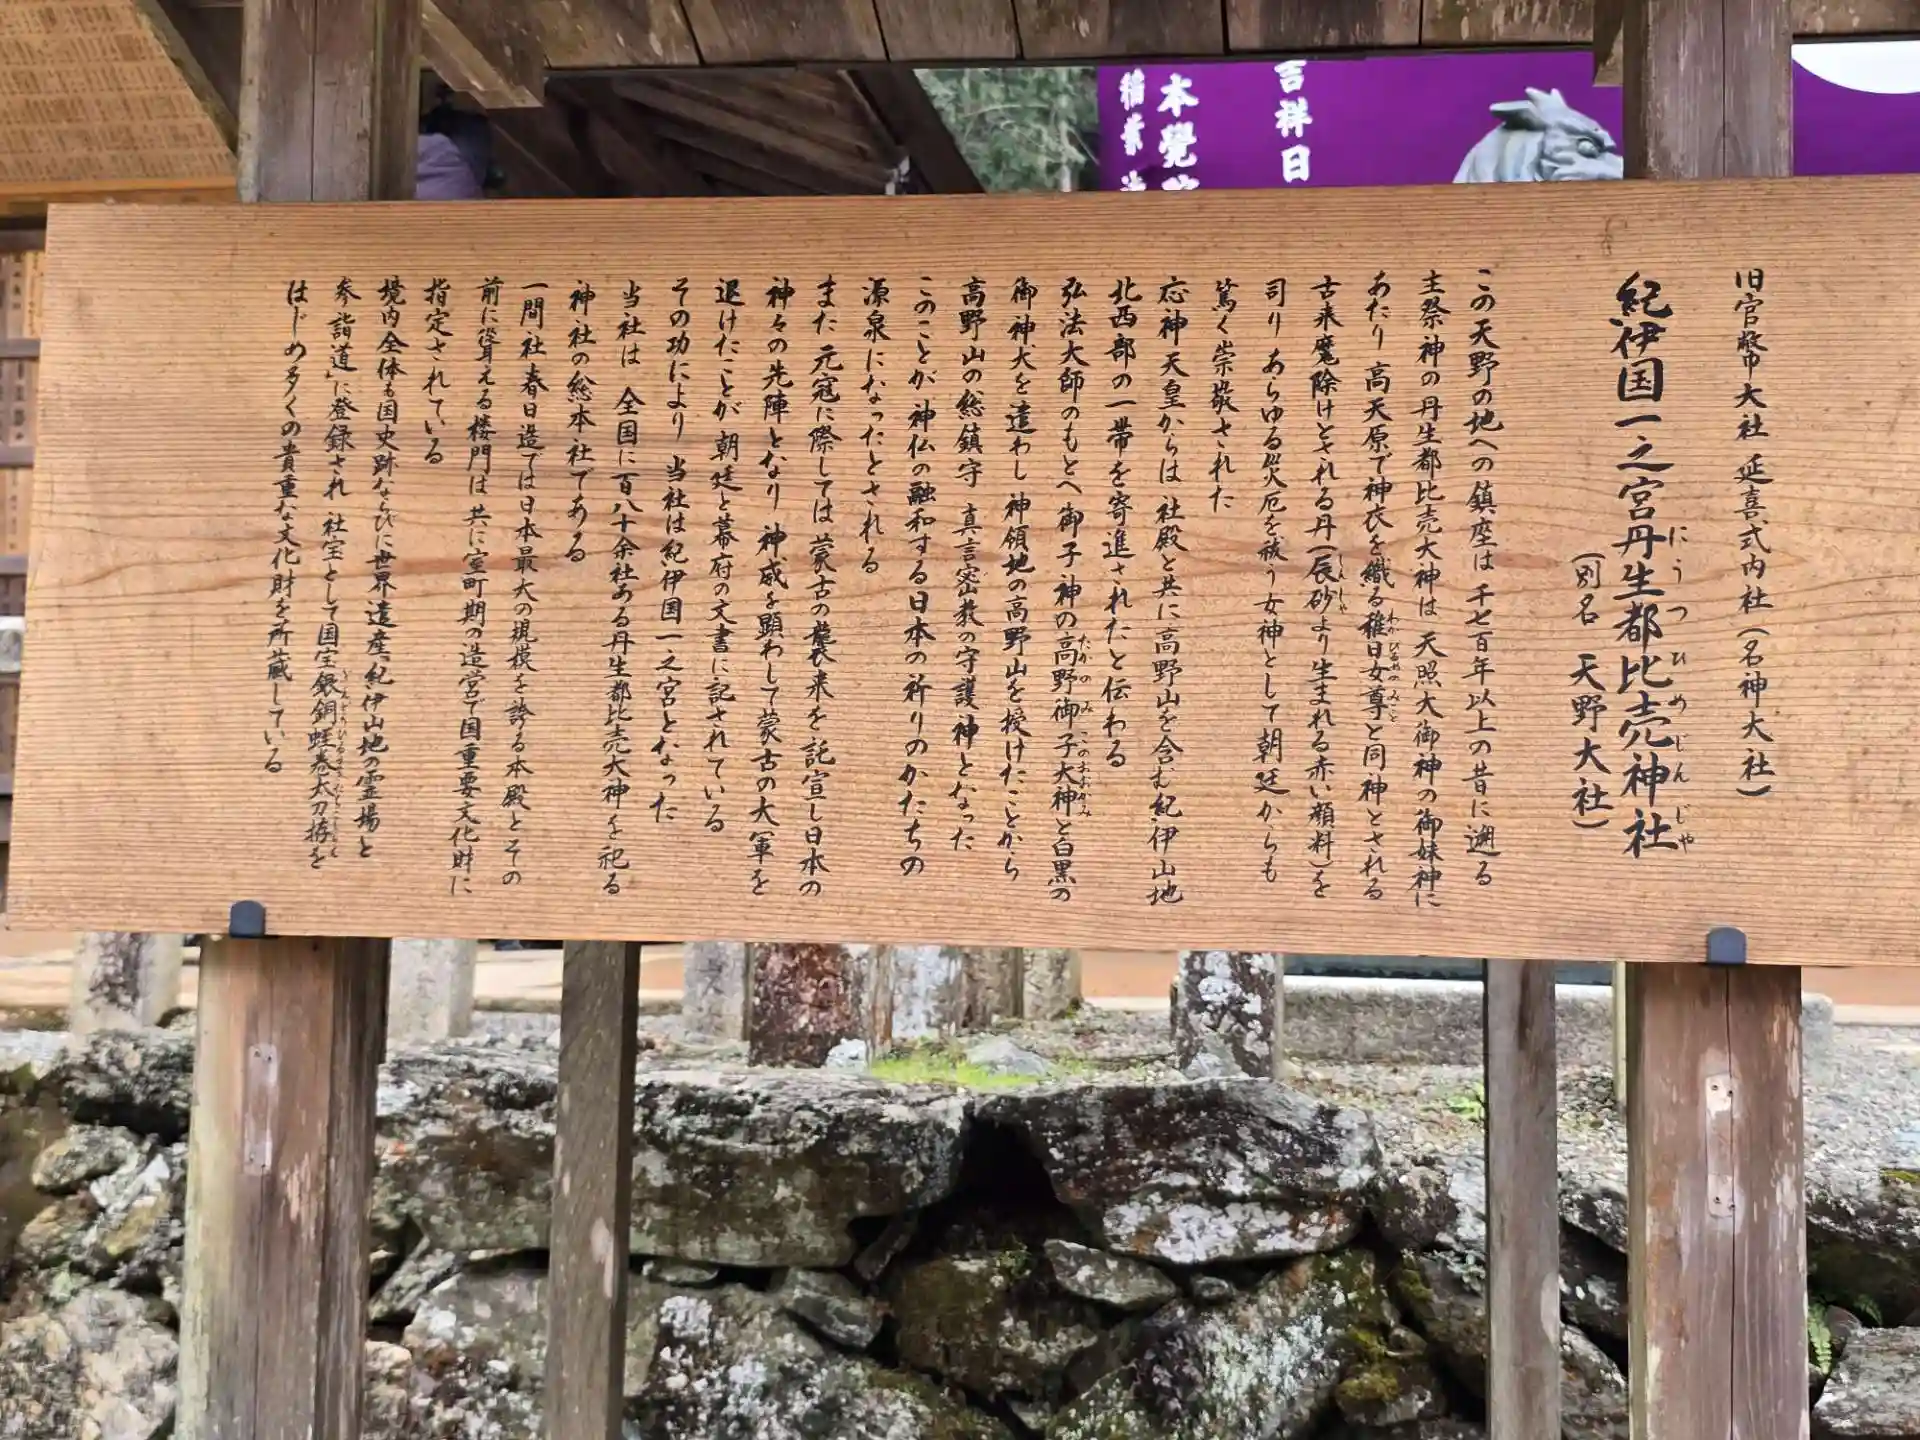 旧官幣大社 延喜式内社(名神大社)
紀伊国一之宮丹生都比売神社
にうつひめじんじゃ
(別名 天野大社)
この天野の地への鎮座は 千七百年以上の昔に遡る
主祭神の丹生都比売大神は 天照大御神の御妹神に
あたり 高天原で神衣を織る稚日女尊と同神とされる
わかひるめのみこと
古来魔除けとされる丹(辰砂より生まれる赤い顔料)を
しんしゃ
司り あらゆる災厄を祓う女神として朝廷からも
篤く崇敬された
応神天皇からは 社殿と共に高野山を含む紀伊山地
北西部の一帯を寄進されたと伝わる
弘法大師のもとへ御子神の高野御子大神と白黒の
たかのみこのおおかみ
御神犬を遣わし 神領地の高野山を授けたことから
高野山の総鎮守 真言密教の守護神となった
このことが神仏の融和する日本の祈りのかたちの
源泉になったとされる
また元寇に際しては蒙古の襲来を託宣し日本の
神々の先陣となり 神威を顕わして蒙古の大軍を
退けたことが朝廷と幕府の文書に記されている
その功により 当社は紀伊国一之宮となった
当社は 全国に百八十余社ある丹生都比売大神を祀る
神社の総本社である
一間社春日造では日本最大の規模を誇る本殿とその
前に聳える楼門は共に室町期の造営で国重要文化財に
指定されている
境内全体も国史跡ならびに世界遺産「紀伊山地の霊場と
参詣道」に登録され 社宝として国宝銀銅蛭巻太刀拵を
ぎんどうひるまきたちこしらえ
はじめ多くの貴重な文化財を所蔵している
吉祥日
本覺院
稲葉